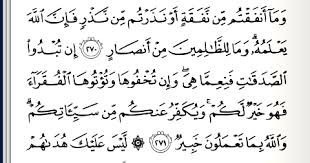 وَمَآ أَنفَقْتُم مِّن نَّفَقَةٍ أَوْ نَذَرْتُم مِّن نَّذْرٍ فَإِنَّ ٱللَّهَ
يَعْلَمُهُۥ وَمَا لِلظَّٰلِمِينَ مِنْ أَنصَارٍ ٢٧٠ إِن تُبْدُوا۟
ٱلصَّدَقَٰتِ فَنِعِمَّا هِىَ وَإِن تُخْفُوهَا وَتُؤْتُوهَا ٱلْفُقَرَآءَ
فَهُوَ خَيْرٌ لَّكُمْ وَيُكَفِّرُ عَنكُم مِّن سَيِّـَٔاتِكُمْ
وَٱللَّهُ بِمَا تَعْمَلُونَ خَبِيرٌ ٢٧١ ۞ لَّيْسَ عَلَيْكَ هُدَىٰهُمْ